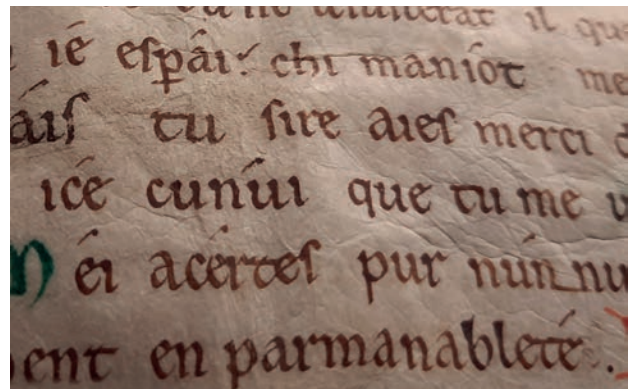 il que
ié espái. chi maniót me
áis tu sire aies merci d
icé cunúi que tu me v
éi acértes pur nún nu
ent en parmanableté.